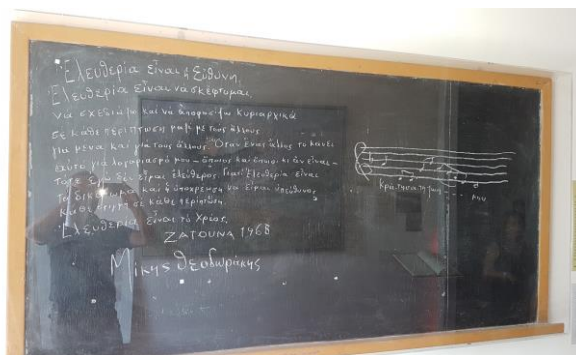 Ἐλευθερία εἶναι ἡ Εὐθύνη.
Ἐλευθερία εἶναι νὰ σκέφτομαι,
νὰ σχεδιάζω καὶ νὰ ἀποφασίζω Κυριαρχικὰ
σὲ κάθε περίπτωση μαζὶ μὲ τοὺς ἄλλους
γιὰ μένα καὶ γιὰ τοὺς ἄλλους. Ὅταν ἕνας ἄλλος τὸ κάνει
γιὰ λογαριασμό μου – ὅποιος καὶ ὅποιοι κι ἂν εἶναι –
τότε ἐγὼ δὲν εἶμαι ἐλεύθερος. Γιατὶ Ἐλευθερία εἶναι
Τὸ δικαίωμα καὶ ἡ ὑποχρέωση νὰ εἶμαι ὑπεύθυνος
σὲ κάθε περίπτωση.
Ἐλευθερία εἶναι τὸ Χρέος.
ΖΑΤΟΥΝΑ 1968
Μίκης Θεοδωράκης
Κράτησα τη ζωή
μου